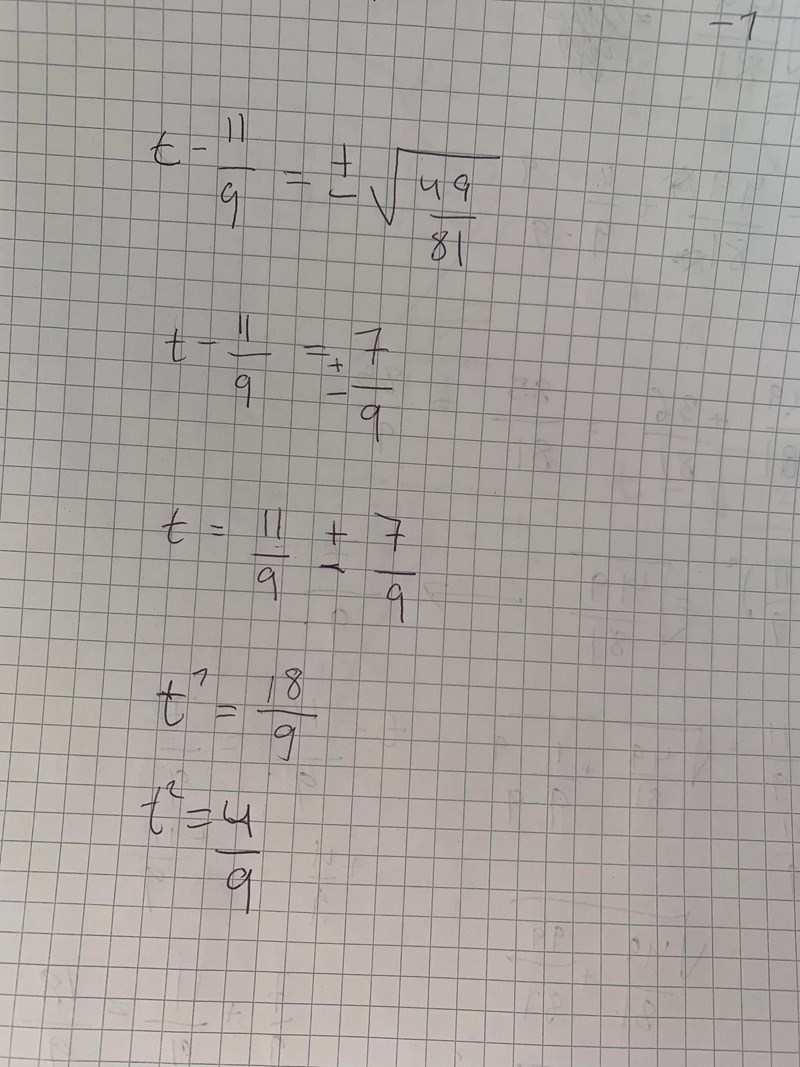 -1
t - 11/9 = ± √49/81
t - 11/9 = ± 7/9
t = 11/9 ± 7/9
t¹ = 18/9
t² = 4/9